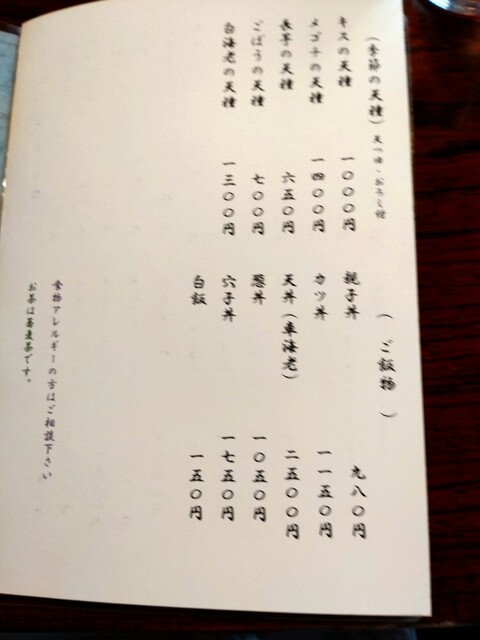 (季節の天種) 天つゆ・おろし付
キスの天種 一〇〇〇円
メゴチの天種 一四〇〇円
長芋の天種 六五〇円
ごぼうの天種 七〇〇円
白海老の天種 一三〇〇円
(ご飯物)
親子丼 九八〇円
カツ丼 一一五〇円
天丼(車海老) 二五〇〇円
葱丼 一〇五〇円
穴子丼 一七五〇円
白飯 一五〇円
食物アレルギーの方はご相談下さい
お茶は蕎麦茶です。